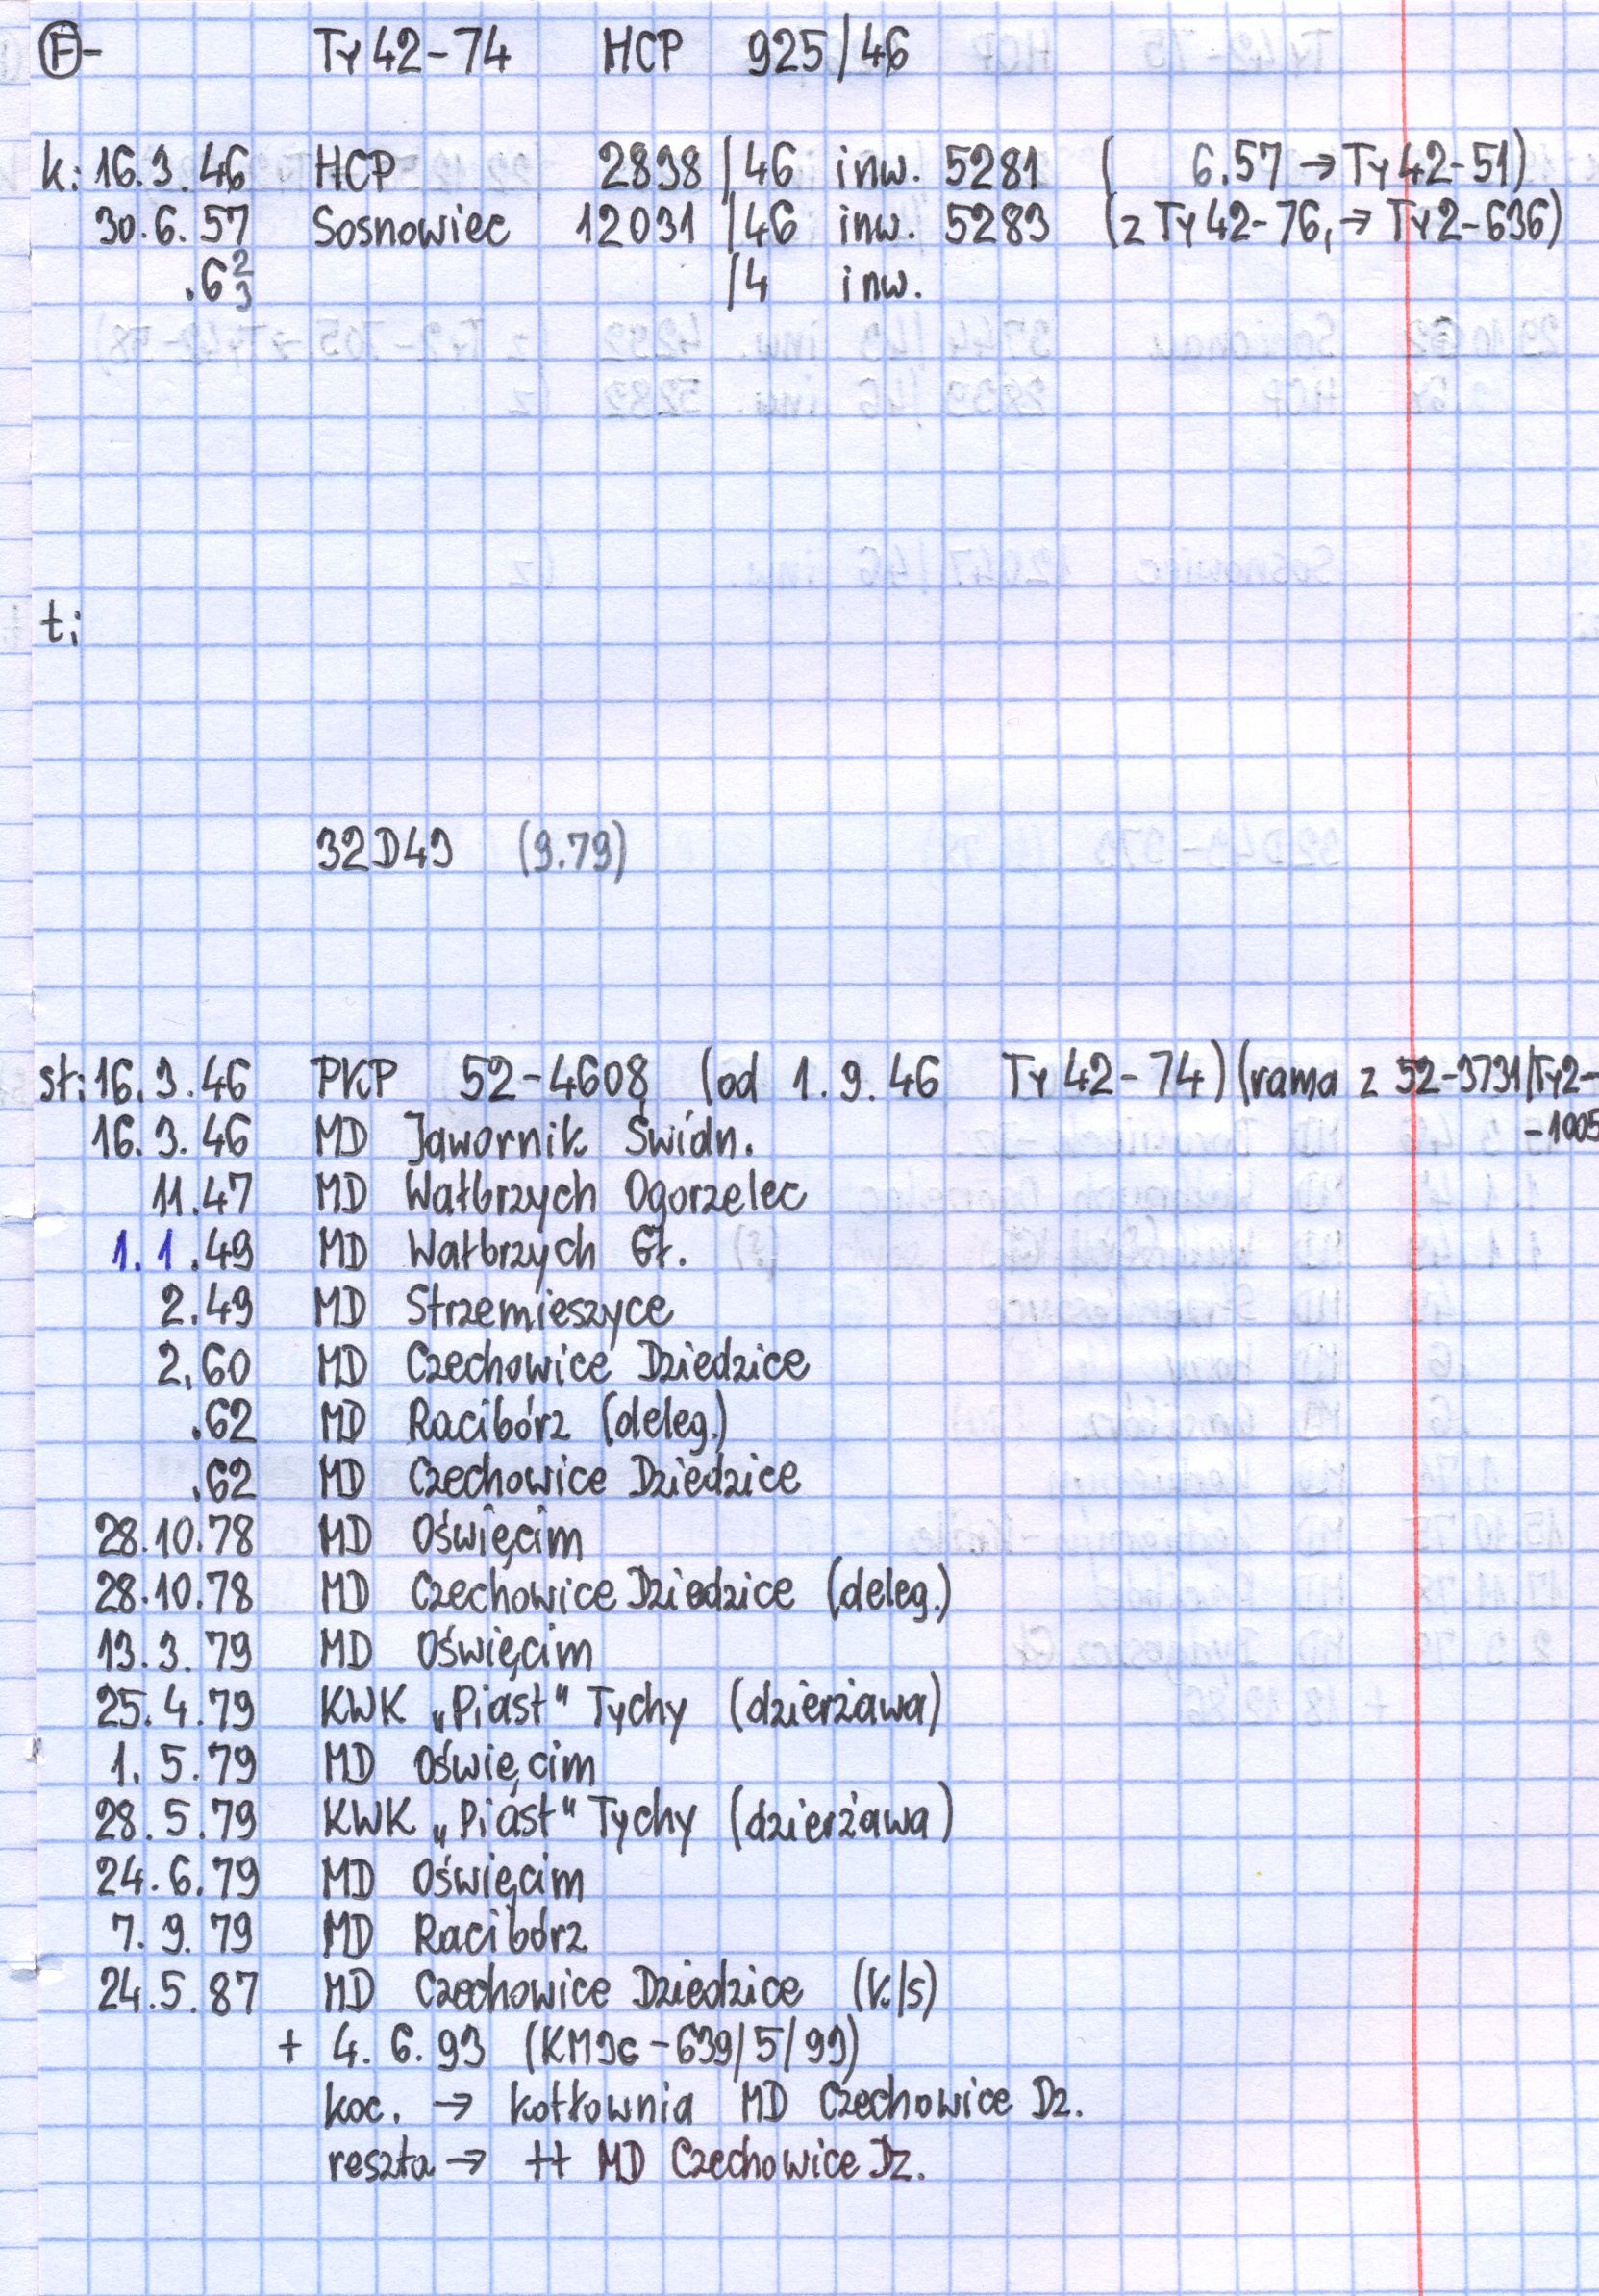 F- Ty42-74 HCP 925/46
k: 16.3.46 HCP 2898/46 inw. 5281 ( 6.57 → Ty42-51)
30.6.57 Sosnowiec 12031/46 inw. 5283 (z Ty42-76, → Ty2-636)
.6 2/3 /4 inw.
t:
32D49 (9.79)
st: 16.3.46 PKP 52-4608 (od 1.9.46 Ty42-74) (rama z 52-3731/Ty2-
-1005
16.3.46 MD Jawornik Świdn.
11.47 MD Wałbrzych Ogorzelec
1.1.49 MD Wałbrzych Gł.
2.49 MD Strzemieszyce
2.60 MD Czechowice Dziedzice
.62 MD Racibórz (deleg.)
.62 MD Czechowice Dziedzice
28.10.78 MD Oświęcim
28.10.78 MD Czechowice Dziedzice (deleg.)
13.3.79 MD Oświęcim
25.4.79 KWK „Piast" Tychy (dzierżawa)
1.5.79 MD Oświęcim
28.5.79 KWK „Piast" Tychy (dzierżawa)
24.6.79 MD Oświęcim
7.9.79 MD Racibórz
24.5.87 MD Czechowice Dziedzice (k/s)
+ 4.6.93 (KM9c-639/5/93)
koc. → kotłownia MD Czechowice Dz.
reszta → ++ MD Czechowice Dz.